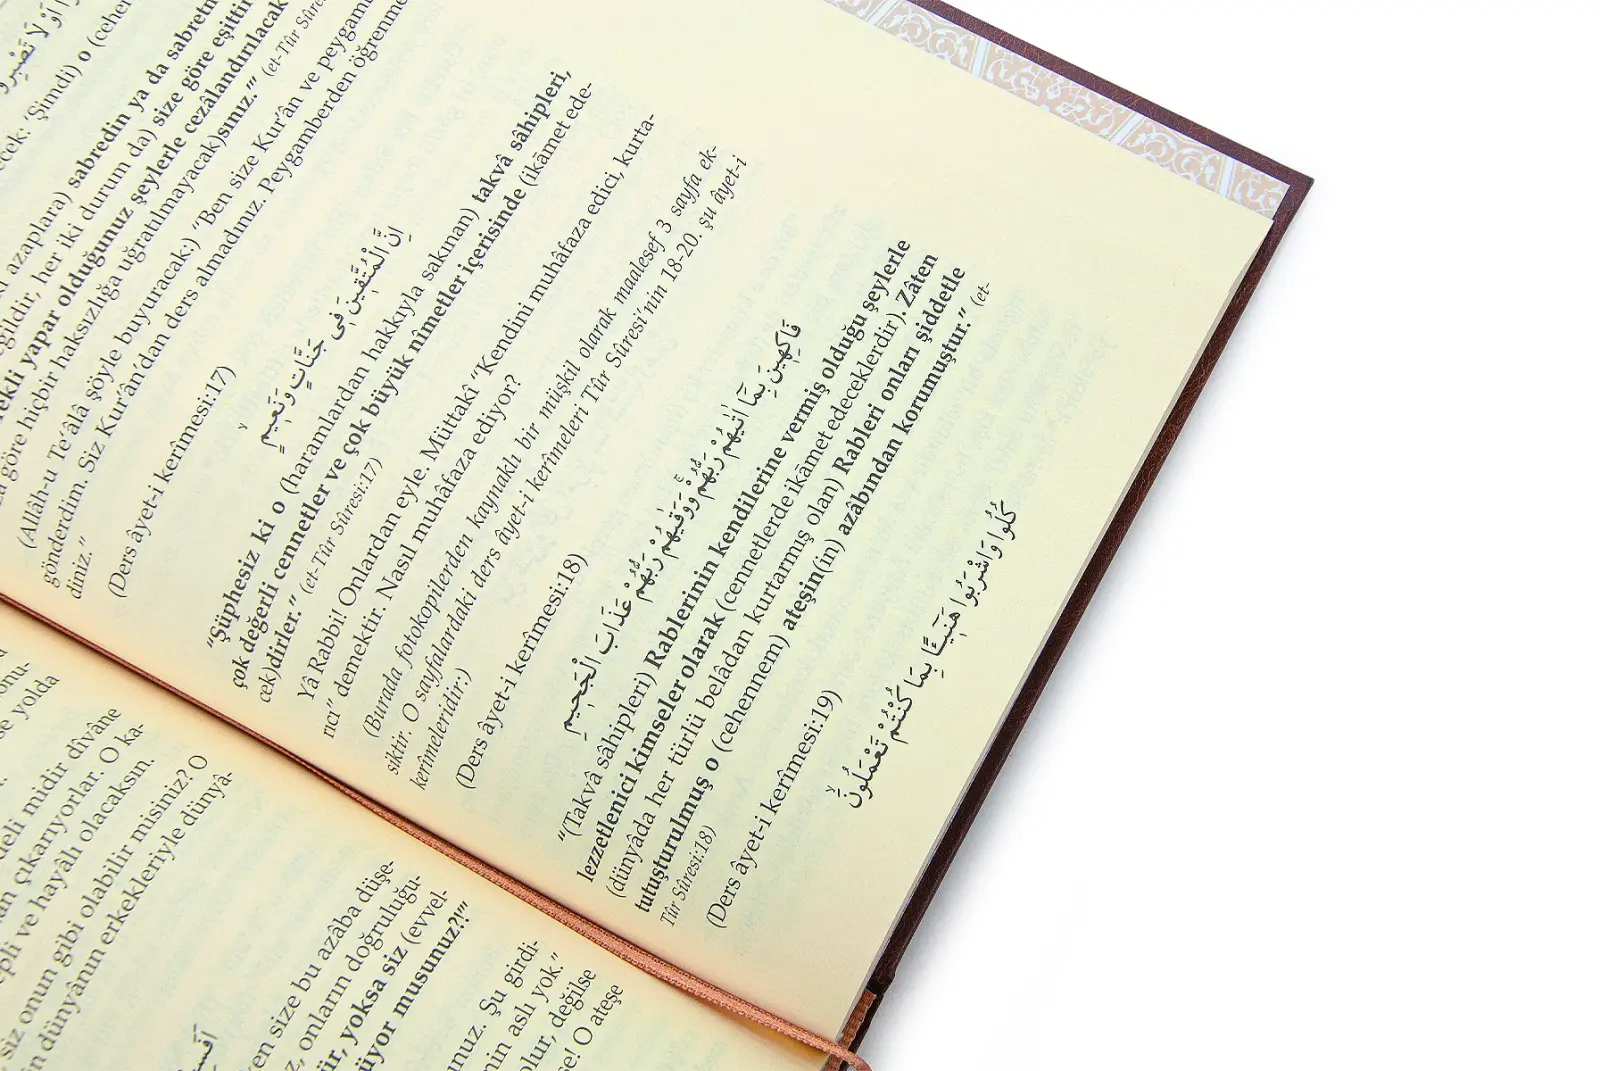 se yolda
deli midir dîvâne
çıkarıyorlar. O ka-
ve hayâlı olacaksın.
siz onun gibi olabilir misiniz? O
dünyânın erkekleriyle dünyâ-
size bu azâba düşe-
onların doğruluğu-
yoksa siz (evvel-
musunuz?!"
Şu girdi-
aslı yok."
olur, değilse
O ateşe
اَوْ لَا تَصْبِرُوا
'Şimdi) o
azaplara) sabredin ya da
her iki durum da) size göre eşittir
yapar olduğunuz şeylerle cezâlandırılacak
göre hiçbir haksızlığa uğratılmayacak)sınız.'" (et-Tûr
(Allâh-u Te'âlâ şöyle buyuracak:) "Ben size Kur'ân ve
gönderdim. Siz Kur'ân'dan ders almadınız. Peygamberden
diniz."
(Ders âyet-i kerîmesi:17)
اِنَّ الْمُتَّقٖينَ فٖى جَنَّاتٍ وَنَعٖيمٍۙ
"Şüphesiz ki o (haramlardan hakkıyla sakınan) takvâ sâhipleri,
çok değerli cennetler ve çok büyük nîmetler içerisinde (ikāmet ede-
cek)dirler." (et-Tûr Sûresi:17)
Yâ Rabbi! Onlardan eyle. Müttakî "Kendini muhâfaza edici, kurta-
rıcı" demektir. Nasıl muhâfaza ediyor?
(Burada fotokopilerden kaynaklı bir müşkil olarak maalesef 3 sayfa ek-
siktir. O sayfalardaki ders âyet-i kerîmeleri Tûr Sûresi'nin 18-20. şu âyet-i
kerîmeleridir:)
(Ders âyet-i kerîmesi:18)
فَاكِهٖينَ بِمَٓا اٰتٰيهُمْ رَبُّهُمْۚ وَوَقٰيهُمْ رَبُّهُمْ عَذَابَ الْجَحٖيمِ
"(Takvâ sâhipleri) Rablerinin kendilerine vermiş olduğu şeylerle
lezzetlenici kimseler olarak (cennetlerde ikāmet edeceklerdir). Zâten
(dünyâda her türlü belâdan kurtarmış olan) Rableri onları şiddetle
tutuşturulmuş o (cehennem) ateşin(in) azâbından korumuştur." (et-
Tûr Sûresi:18)
(Ders âyet-i kerîmesi:19)
كُلُوا وَاشْرَبُوا هَنٖٓيـًٔا بِمَا كُنْتُمْ تَعْمَلُونَۙ